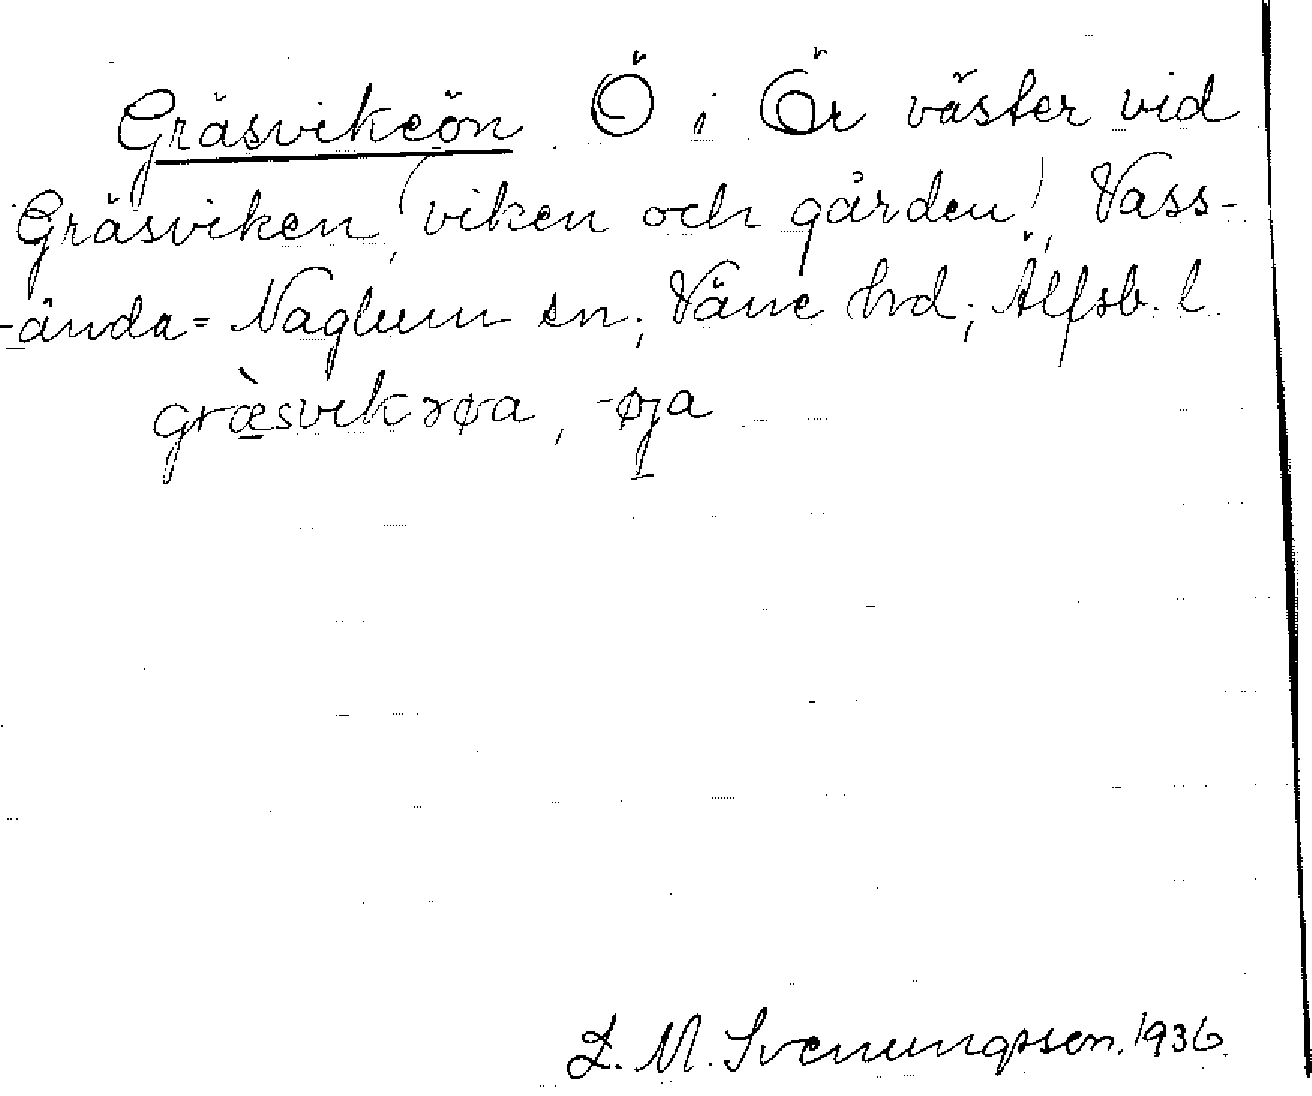 Gräsvikeön Ö i Ör väster vid
Gräsviken (viken och gården), Vass-
-ända=Naglum sn; Väne hrd; Älfsb. l.
græ̀svikrøa, -øja
L. M. Svenungsson. 1936.